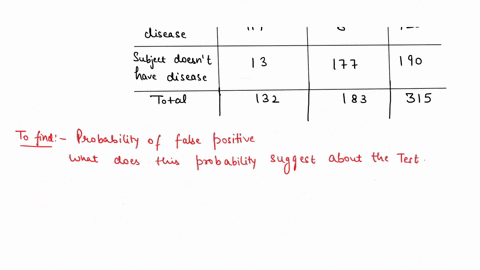 disease
Subject doesn't 13 177 190
have disease
Total 132 183 315
To find:- Probability of false positive
What does this probability suggest about the Test.